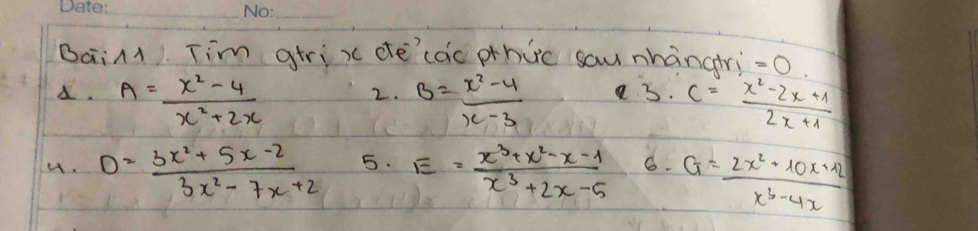 Date: No:
Bài 11. Tìm gtrị x để các pthức sau nhận gtrị = 0.
1. A = (x² - 4)/(x² + 2x) 2. B = (x² - 4)/(x - 3) 3. C = (x² - 2x + 1)/(2x + 1)
4. D = (3x² + 5x - 2)/(3x² - 7x + 2) 5. E = (x³ + x² - x - 1)/(x³ + 2x - 5) 6. G = (2x² + 10x + 12)/(x³ - 4x)